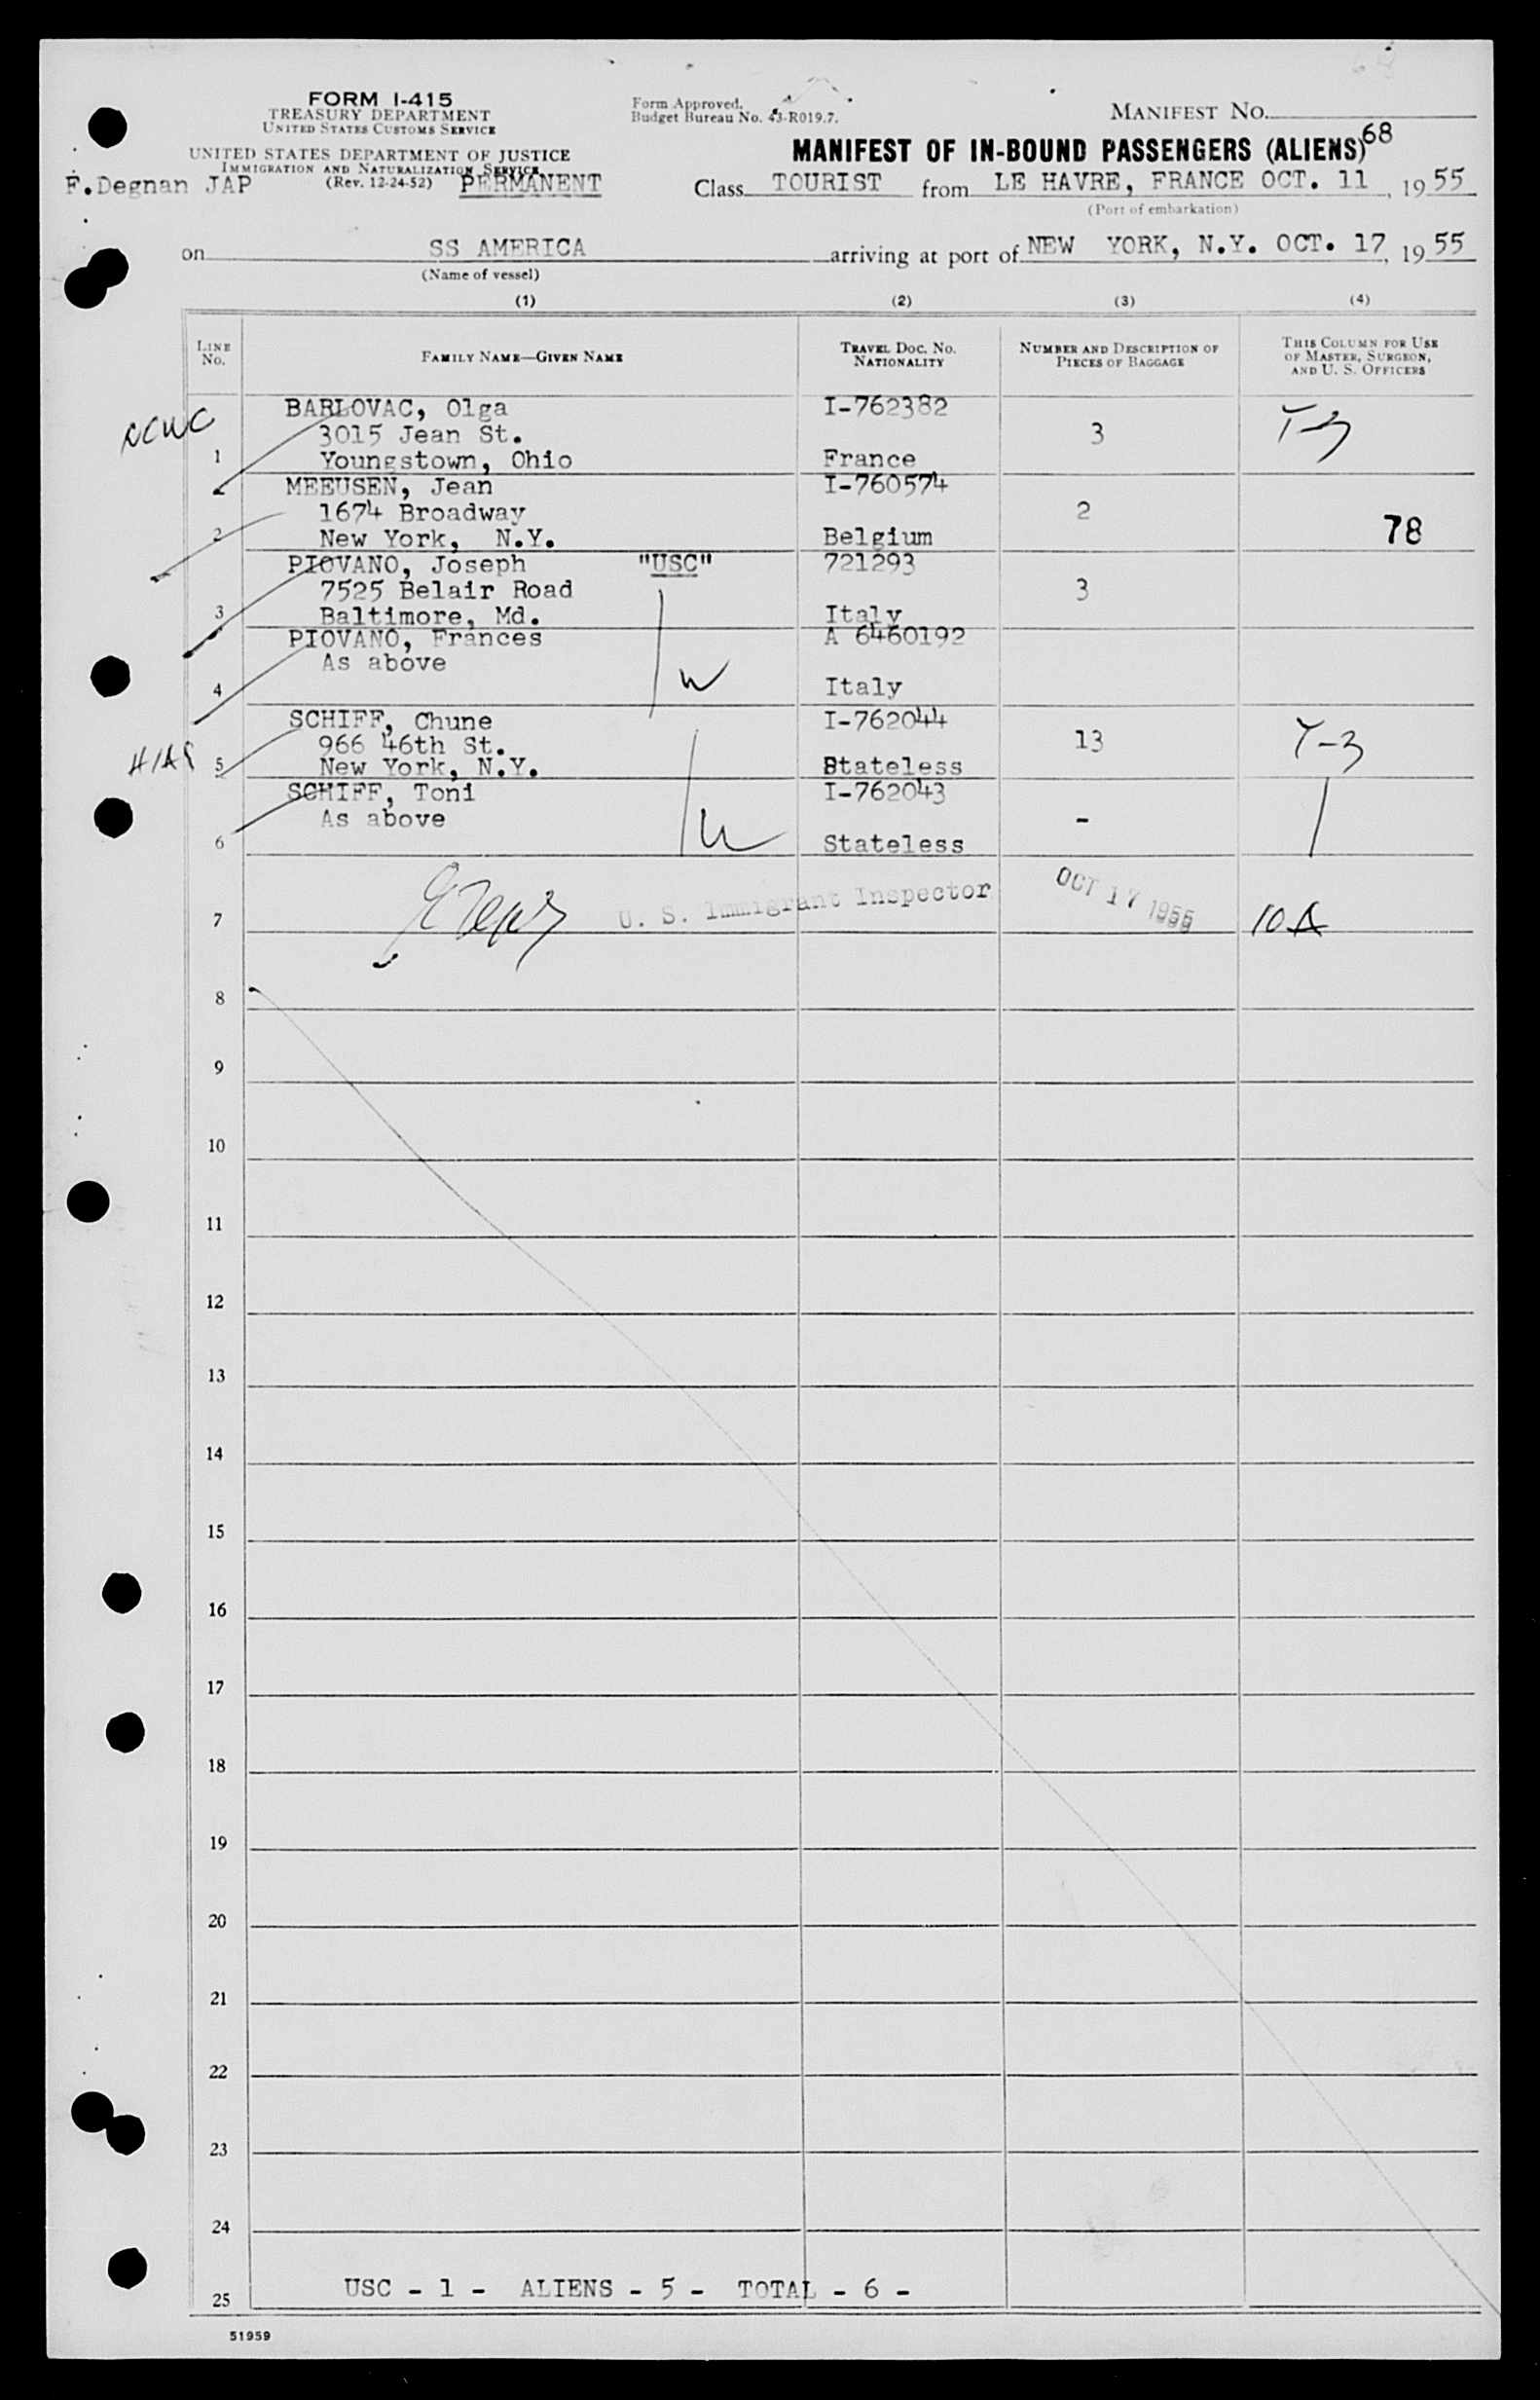 FORM I-415
TREASURY DEPARTMENT
UNITED STATES CUSTOMS SERVICE
UNITED STATES DEPARTMENT OF JUSTICE
IMMIGRATION AND NATURALIZATION SERVICE
(Rev. 12-24-52) PERMANENT
F.Degnan JAP
Form Approved.
Budget Bureau No. 43-R019.7.
MANIFEST NO.
68
MANIFEST OF IN-BOUND PASSENGERS (ALIENS)
Class TOURIST from LE HAVRE, FRANCE OCT. 11, 1955
(Port of embarkation)
on SS AMERICA arriving at port of NEW YORK, N.Y. OCT. 17, 1955
(Name of vessel)
(1) (2) (3) (4)
LINE No.
FAMILY NAME—GIVEN NAME
TRAVEL DOC. NO. NATIONALITY
NUMBER AND DESCRIPTION OF PIECES OF BAGGAGE
THIS COLUMN FOR USE OF MASTER, SURGEON, AND U. S. OFFICERS
NCWC
BARLOVAC, Olga I-762382
3015 Jean St. 3 T-3
1 Youngstown, Ohio France
MEEUSEN, Jean I-760574
1674 Broadway 2
2 New York, N.Y. Belgium 78
PIOVANO, Joseph "USC" 721293
7525 Belair Road 3
3 Baltimore, Md. Italy
PIOVANO, Frances A 6460192
As above
4 Italy
SCHIFF, Chune I-762044
966 46th St. 13 T-3
HIAS 5 New York, N.Y. Stateless
SCHIFF, Toni I-762043
As above -
6 Stateless
7 U. S. Immigrant Inspector OCT 17 1955 10A
8
9
10
11
12
13
14
15
16
17
18
19
20
21
22
23
24
25 USC - 1 - ALIENS - 5 - TOTAL - 6 -
51959